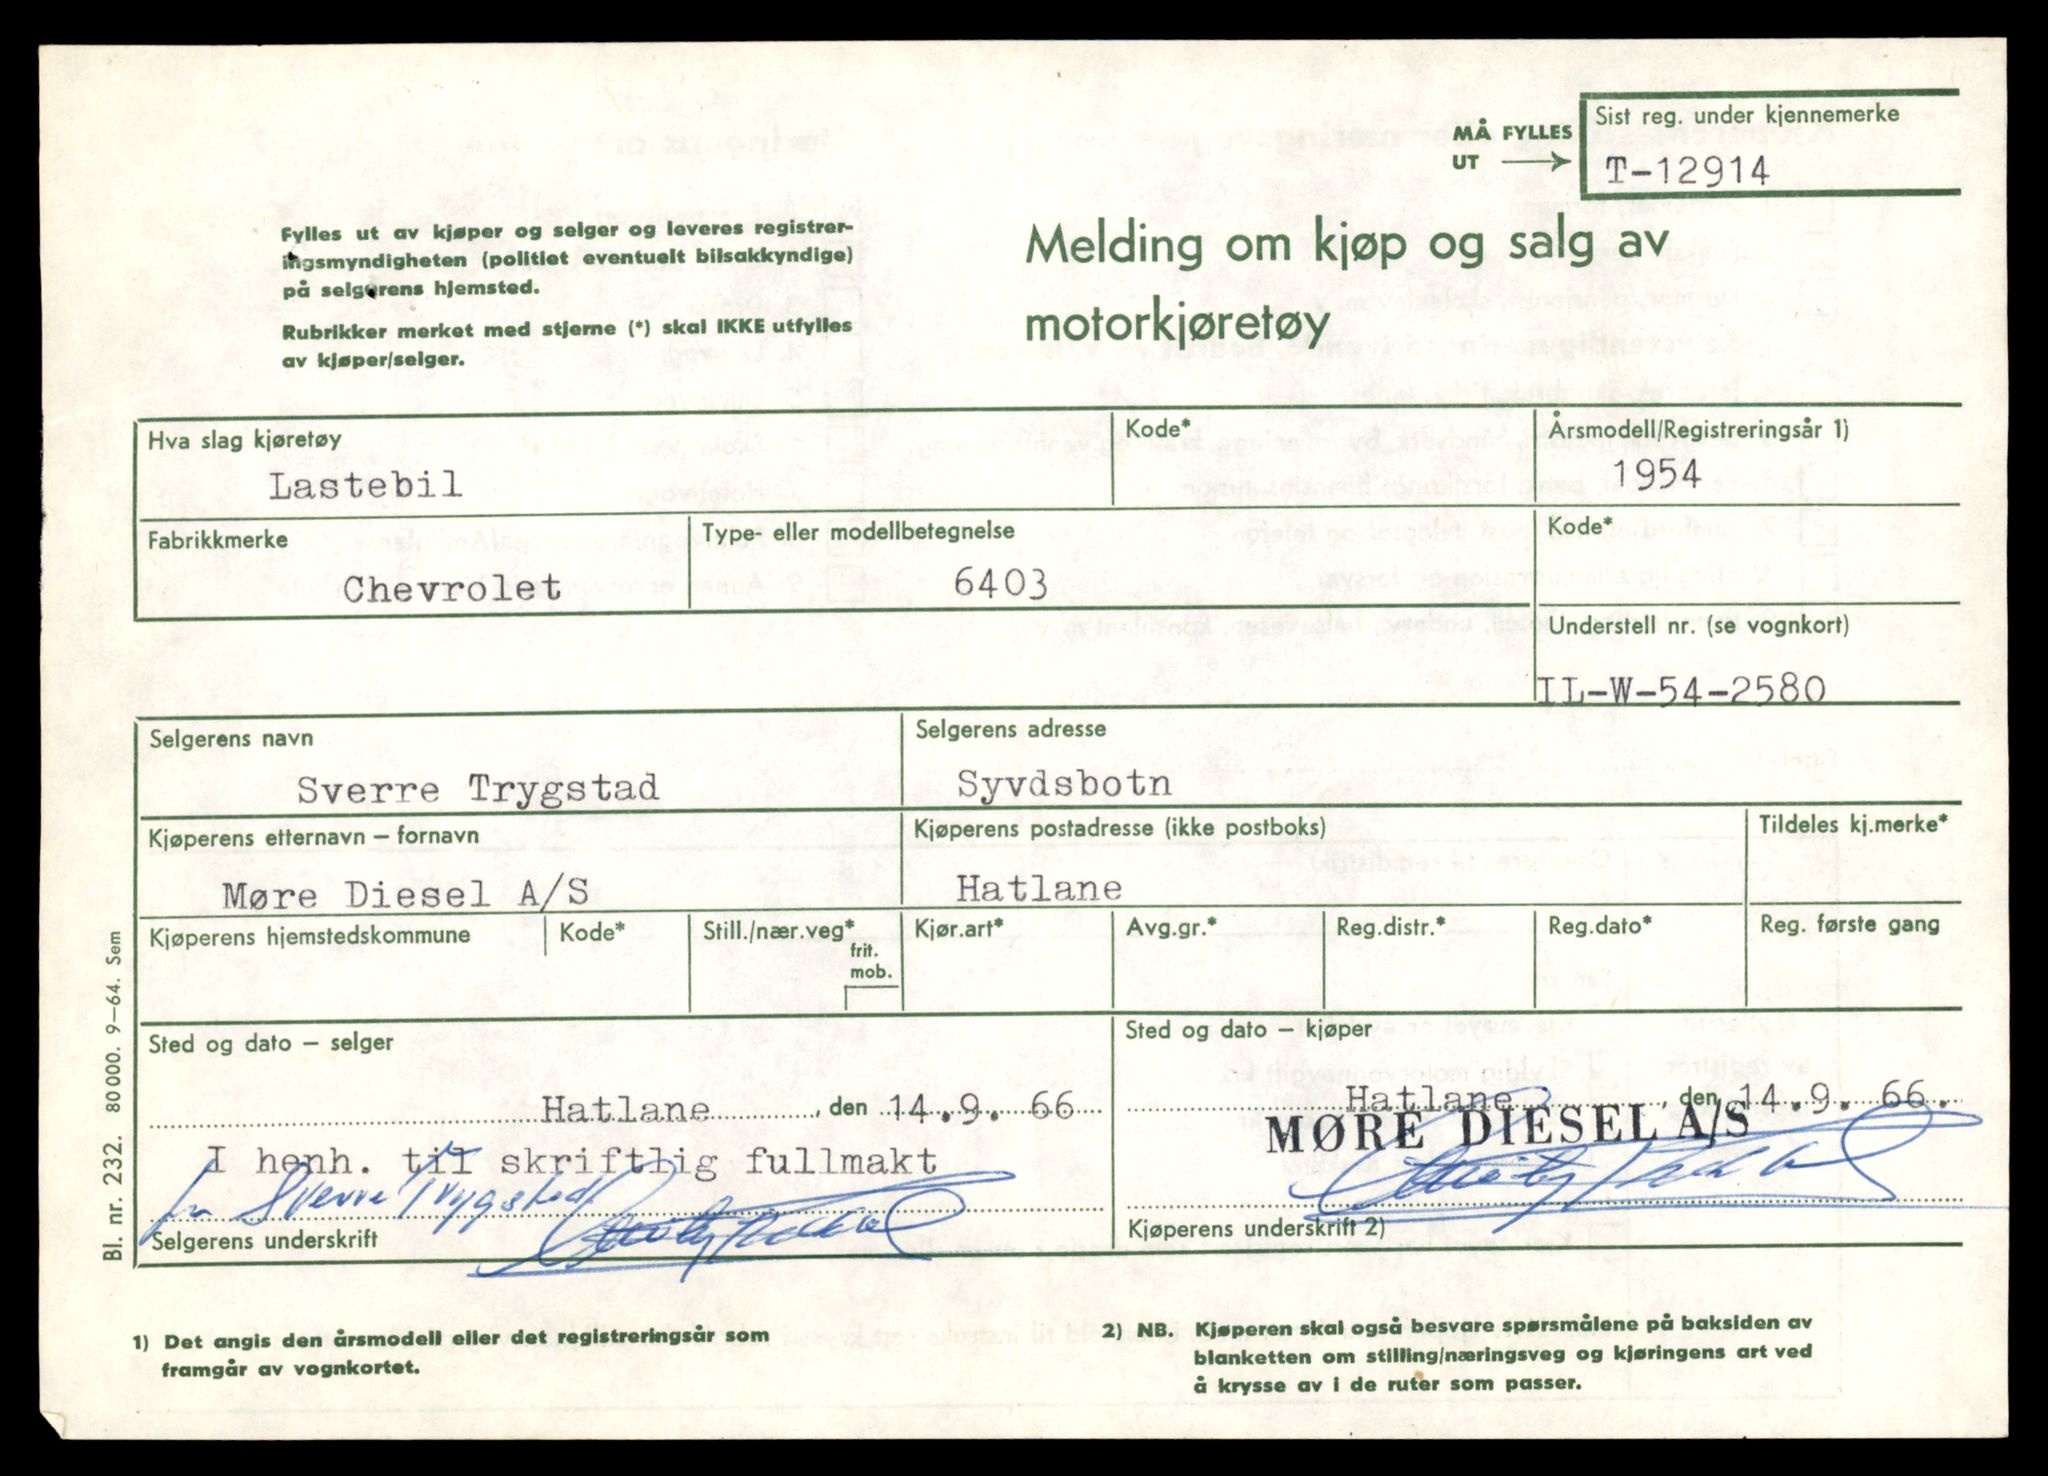 Sist reg. under kjennemerke
MÅ FYLLES
UT
T-12914
Fylles ut av kjøper og selger og leveres registrer-
ingsmyndigheten (politiet eventuelt bilsakkyndige)
på selgerens hjemsted.
Rubrikker merket med stjerne (*) skal IKKE utfylles
av kjøper/selger.
Melding om kjøp og salg av
motorkjøretøy
Hva slag kjøretøy
Lastebil
Kode*
Årsmodell/Registreringsår 1)
1954
Fabrikkmerke
Chevrolet
Type- eller modellbetegnelse
6403
Kode*
Understell nr. (se vognkort)
IL-W-54-2580
Selgerens navn
Sverre Trygstad
Selgerens adresse
Syvdsbotn
Kjøperens etternavn – fornavn
Møre Diesel A/S
Kjøperens postadresse (ikke postboks)
Hatlane
Tildeles kj.merke*
Kjøperens hjemstedskommune
Kode*
Still./nær.veg*
frit.
mob.
Kjør.art*
Avg.gr.*
Reg.distr.*
Reg.dato*
Reg. første gang
Sted og dato – selger
Hatlane , den 14.9. 66
I henh. til skriftlig fullmakt
Sverre Trygstad
Selgerens underskrift
Sted og dato – kjøper
Hatlane , den 14.9. 66.
MØRE DIESEL A/S
Kjøperens underskrift 2)
Bl. nr. 232. 80000. 9–64. Sem
1) Det angis den årsmodell eller det registreringsår som
framgår av vognkortet.
2) NB. Kjøperen skal også besvare spørsmålene på baksiden av
blanketten om stilling/næringsveg og kjøringens art ved
å krysse av i de ruter som passer.